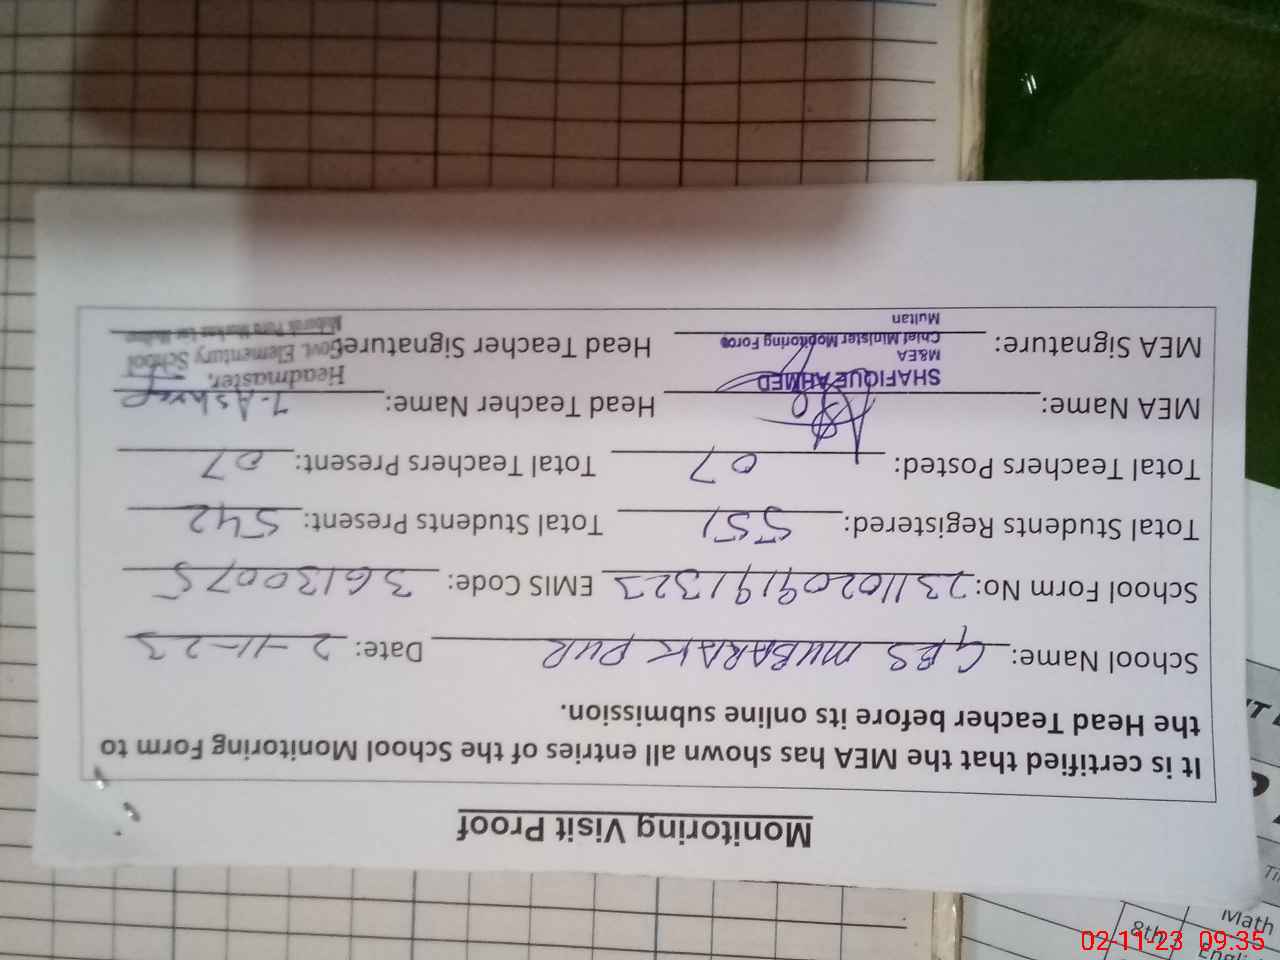 Monitoring Visit Proof
It is certified that the MEA has shown all entries of the School Monitoring Form to
the Head Teacher before its online submission.
School Name: GES MUBARAK PUR Date: 2-11-23
School Form No: 23110209191323 EMIS Code: 36130075
Total Students Registered: 551 Total Students Present: 542
Total Teachers Posted: 07 Total Teachers Present: 07
MEA Name: Head Teacher Name: Ashraf
SHAFIQUE AHMED
M&EA
Chief Minister Monitoring Force
Multan
Headmaster,
Govt. Elementary School
MEA Signature: Head Teacher Signature:
8th
Math
English
02-11-23 09:35